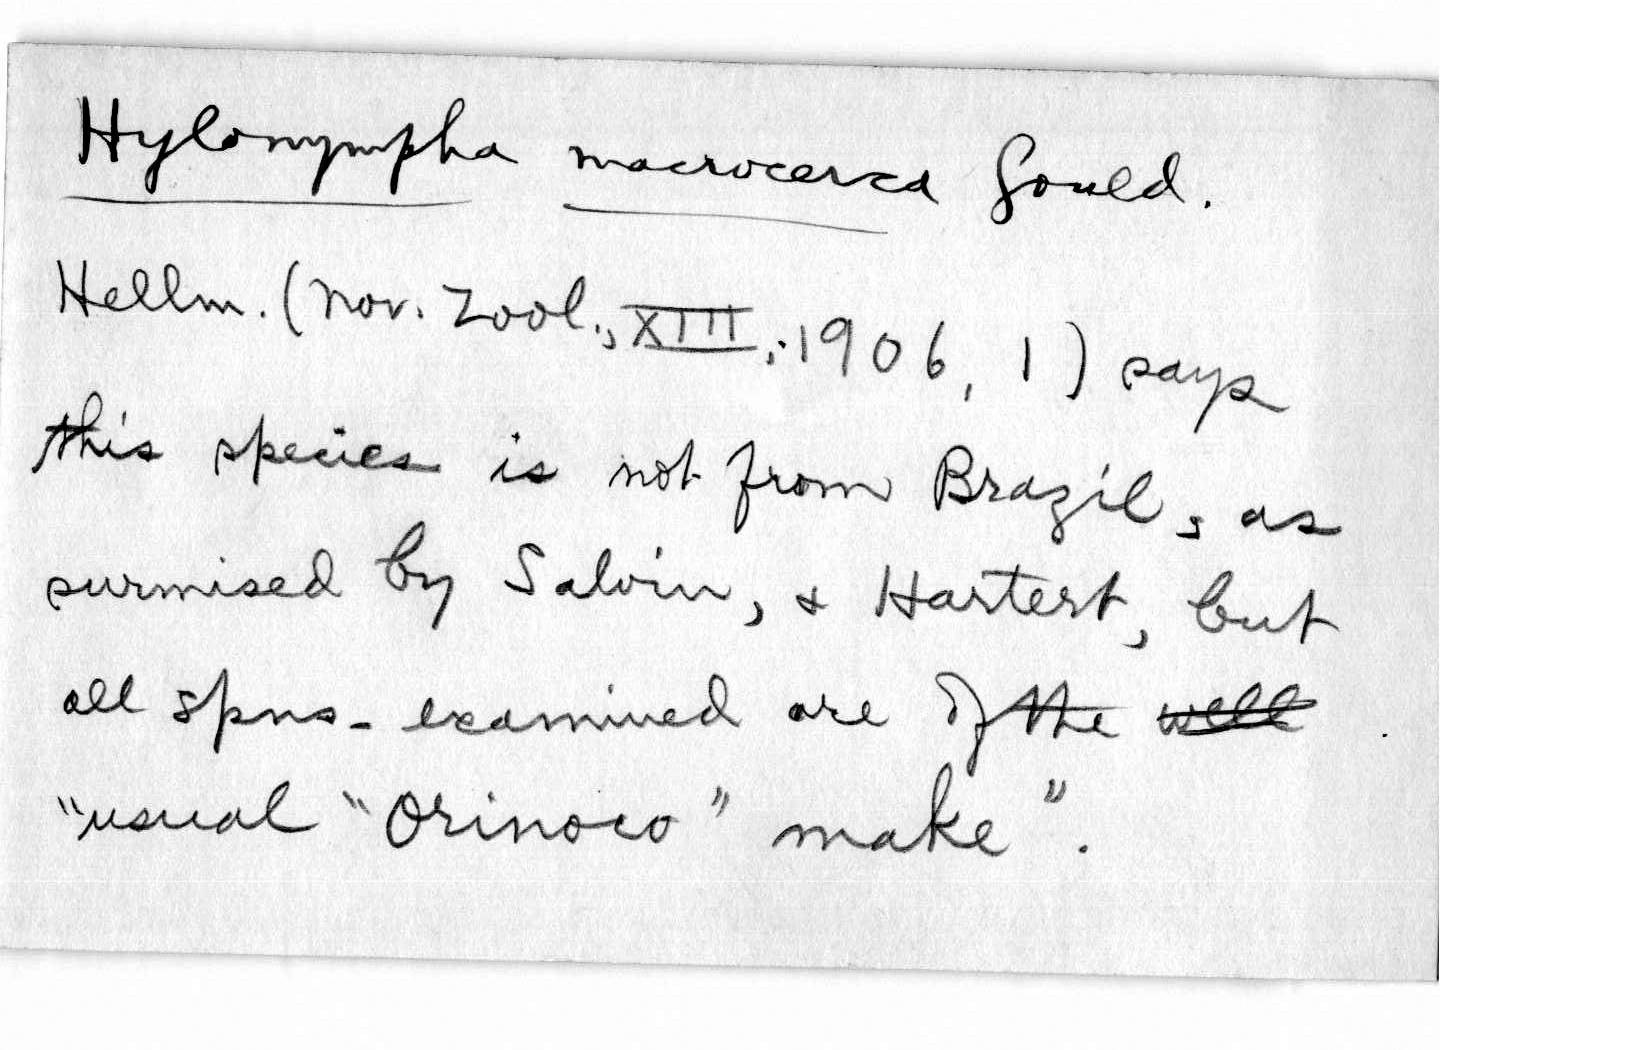 Hylonympha macrocerca Gould.
Hellm. (Nov. Zool., XIII, 1906, 1) says
this species is not from Brazil, as
surmised by Salvin, & Hartert, but
all spns. examined are of the well
"usual "Orinoco" make".